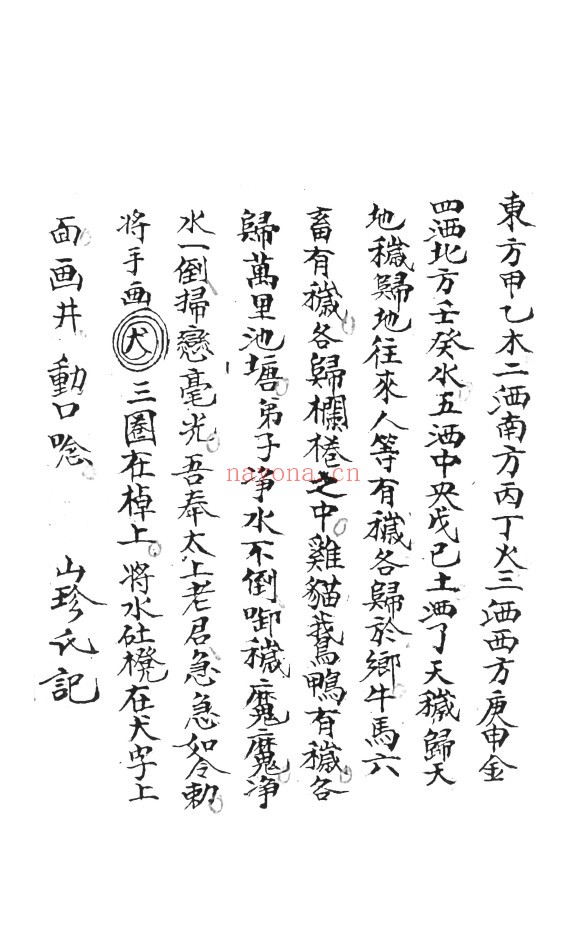 東方甲乙木二洒南方丙丁火三洒西方庚申金
四洒北方壬癸水五洒中央戊己土洒了天穢歸天
地穢歸地往來人等有穢各歸於鄉牛馬六
畜有穢各歸欄棬之中雞貓鵞鴨有穢各
歸萬里池塘弟子净水不倒啣穢魔魔净
水一倒掃愆毫光吾奉太上老君急急如令勅
將手画犬三圈在棹上將水砋櫈在犬字上
面画井動口唸 山珍氏記
nayona.cn